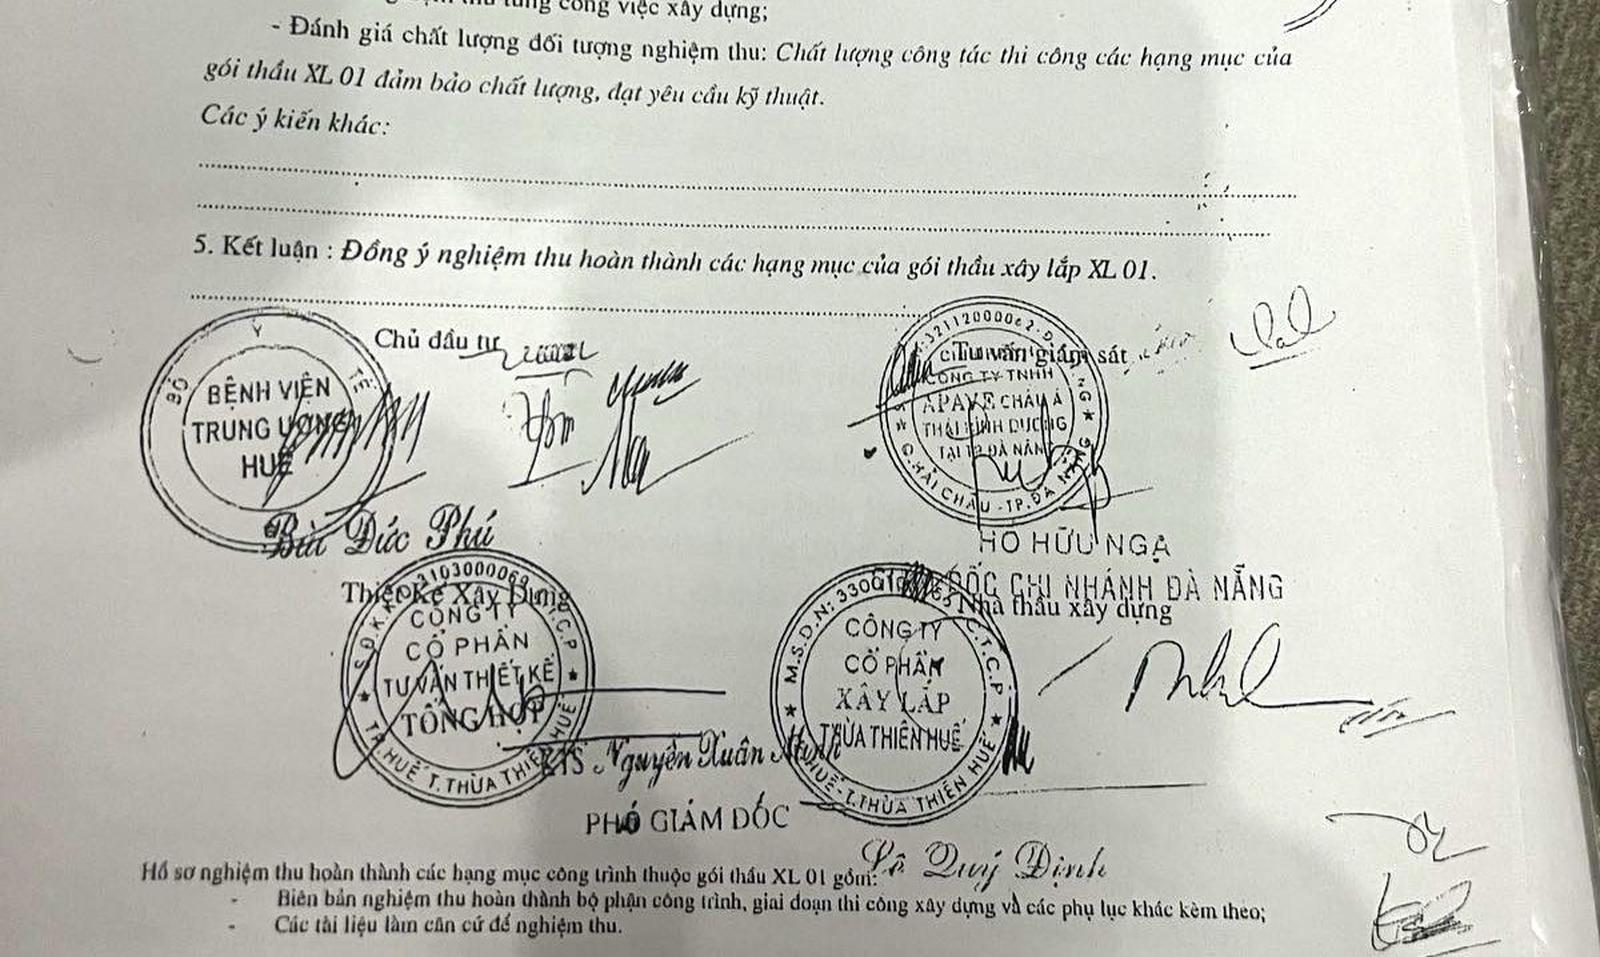 công việc xây dựng;
- Đánh giá chất lượng đối tượng nghiệm thu: Chất lượng công tác thi công các hạng mục của
gói thầu XL 01 đảm bảo chất lượng, đạt yêu cầu kỹ thuật.
Các ý kiến khác:
5. Kết luận : Đồng ý nghiệm thu hoàn thành các hạng mục của gói thầu xây lắp XL 01.
Chủ đầu tư
BỘ Y TẾ
BỆNH VIỆN
TRUNG ƯƠNG
HUẾ
Bùi Đức Phú
Tư vấn giám sát
CÔNG TY TNHH
APAVE CHÂU Á
THÁI BÌNH DƯƠNG
TẠI TP ĐÀ NẴNG
Q.HẢI CHÂU - TP.ĐÀ NẴNG
HỒ HỮU NGA
ĐỐC CHI NHÁNH ĐÀ NẴNG
Thiết Kế Xây Dựng
CÔNG TY
CỔ PHẦN
TƯ VẤN THIẾT KẾ
TỔNG HỢP
TP. HUẾ T. THỪA THIÊN HUẾ
KTS Nguyễn Xuân
PHÓ GIÁM ĐỐC
Nhà thầu xây dựng
CÔNG TY
CỔ PHẦN
XÂY LẮP
THỪA THIÊN HUẾ
HUẾ - T.THỪA THIÊN HUẾ
Lê Quý Định
Hồ sơ nghiệm thu hoàn thành các hạng mục công trình thuộc gói thầu XL 01 gồm:
- Biên bản nghiệm thu hoàn thành bộ phận công trình, giai đoạn thi công xây dựng và các phụ lục khác kèm theo;
- Các tài liệu làm căn cứ để nghiệm thu.